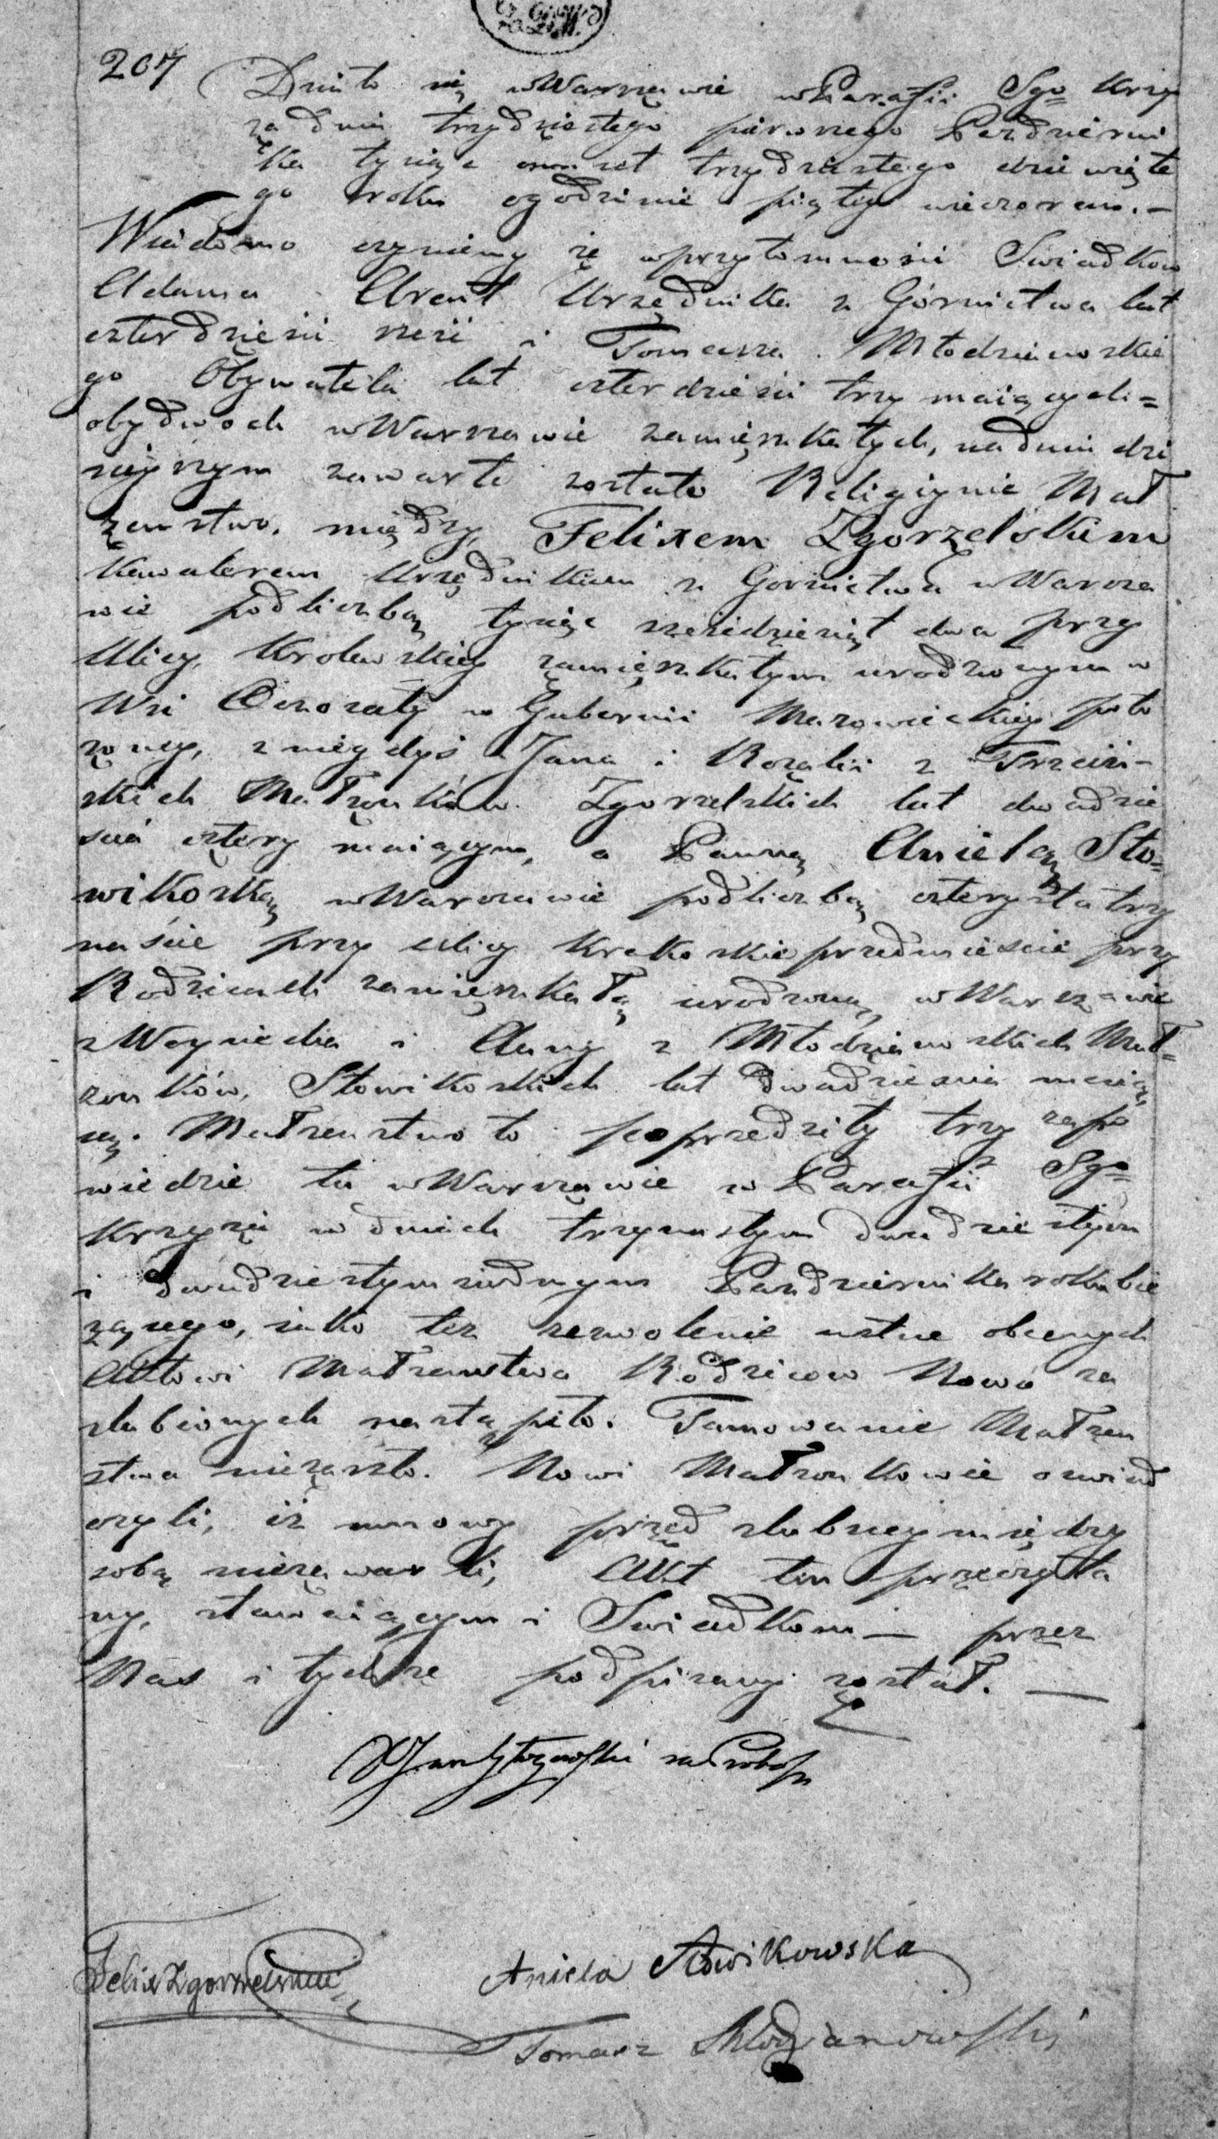 207 Działo się w Warszawie w Parafii Sgo Krzy
ża dnia trzydziestego pierwszego Pazdzierni
ka tysiąc ośmset trzydziestego dziewięte
go roku o godzinie piątey wieczorem. —
Wiadomo czyniemy że w przytomności Swiadkow
Adama Arent Urzędnika z Górnictwa lat
czterdzieści sześć i Tomasza Młodzianowskie
go Obywatela lat czterdzieści trzy maiących =
obydwoch w Warszawie zamięszkałych, na dniu dzi
sieyszym zawarte zostało Religiynie Mał
żenstwo, między Felixem Zgorzelskim
Kawalerem Urzędnikiem z Gornictwa w Warsza
wie pod liczbą tysiąc sześćdziesiąt dwa przy
Ulicy Krolewskiey zamięszkałym urodzonym w
Wsi Czozały w Gubernii Mazowieckiey poło
żoney, z niegdyś Jana i Rozalii z Trzciń-
skich Małżonków Zgorzelskich lat dwadzie
ścia cztery maiącym, a Panną Anielą Sło-
wikoską w Warszawie pod liczbą czterysta trzy
naście przy ulicy Krakoskie przedmieście przy
Rodzicach zamięszkałą urodzoną w Warszawie
z Woyciecha i Anny z Młodzianowskich Mał-
żonków, Słowikoskich lat dwadzieścia maią
cą. Małżenstwo to poprzedziły trzy zapo
wiedzie tu w Warszawie w Parafii Sgo
Krzyża w dniach trzynastym dwudziestym
i dwudziestym siodmym Pazdziernika roku bie
żącego, iako też zezwolenie ustne obecnych
Aktowi Małżenstwa Rodzicow Nowo za
slubionych nastąpiło. Tamowanie Małżen
stwa niezaszło. Nowi Małżonkowie oswiad
czyli, iż umowy przed slubney między
sobą niezawarli, Akt ten przeczyta
ny, stawaiącym i Swiadkom — przez
Nas i tychże podpisany został. —
za Probosz
Felix Zgorzelski Aniela Słowikowska
Tomasz Młodzianowski